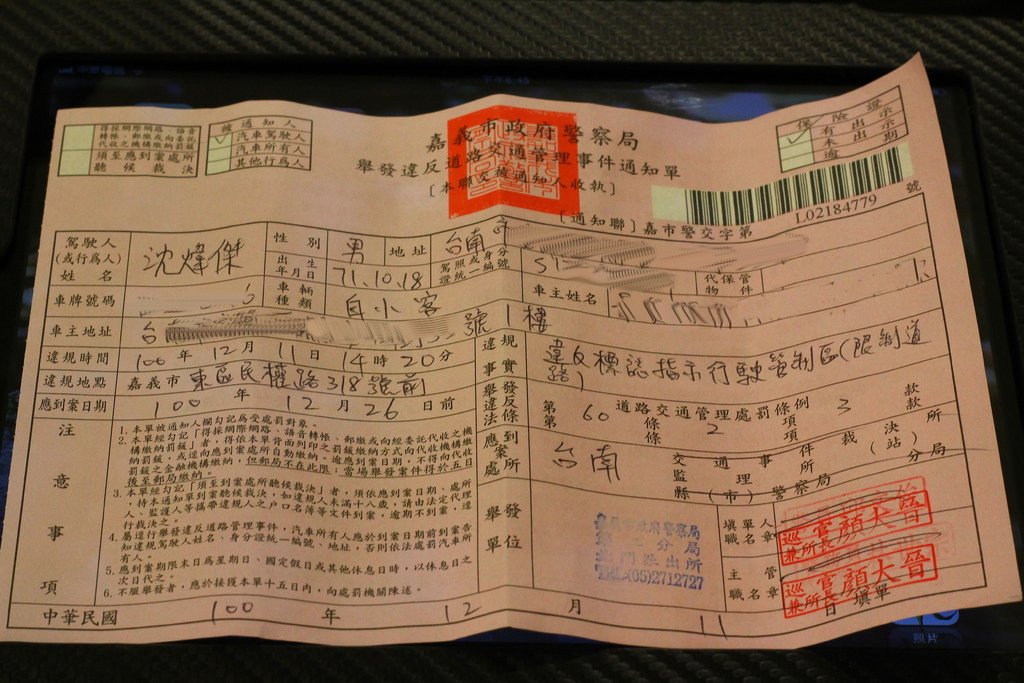 得採網際網路、語音
轉帳、郵繳或向委託
代收之機構繳納罰鍰
須至應到案處所
聽候裁決
被通知人
汽車駕駛人
汽車所有人
其他行為人
嘉義市政府警察局
舉發違反道路交通管理事件通知單
〔本聯交被通知人收執〕
保險證
有出示
未出示
逾期
L02184779
〔通知聯〕嘉市警交字第 號
駕駛人
(或行為人)
姓名
沈煒傑
性別 男 地址 台南市
出生年月日 71.10.18
駕照或身分證統一編號 S1
代保管物件
車牌號碼
車輛種類 自小客
車主姓名
車主地址 台 號1樓
違規時間 100年12月11日14時20分
違規地點 嘉義市東區民權路318號前
應到案日期 100年12月26日前
違規事實 違反標誌指示行駛管制區(限制道路)
舉發違反法條
第60條2項3款
第 條 項 款
道路交通管理處罰條例
應到案處所 台南
交通事件裁決所
監理所(站)
縣(市)警察局 分局
注意事項
1.本單被通知人欄勾記為受處罰對象。
2.本單經勾記「得採網際網路、語音轉帳、郵繳或向經委託代收之機
構繳納罰鍰」者,得依本單背面列印之罰鍰繳納方式向代收機構繳
納罰鍰,或逕向應到案處所自動繳納。逾應到案日期,不得向代收
罰鍰之金融機構繳納,但郵局不在此限;當場舉發案件得於五日
後至郵局繳納。
3.本單經勾記「須至應到案處所聽候裁決」者,須依應到案日期、處所
,持本通知單到案聽候裁決,如違規人未滿十八歲,請由法定代理
人、監護人等攜帶違規人之戶口名簿等文件到案,逾期不到案,逕
行裁決之。
4.屬逕行舉發違反道路管理事件,汽車所有人應於到案日期前到案告
知違規駕駛人姓名、身分證統一編號、地址,否則依法處罰汽車所
有人。
5.應到案日期限末日為星期日、國定假日或其他休息日時,以休息日之
次日代之。
6.不服舉發者,應於接獲本單十五日內,向處罰機關陳述。
舉發單位
嘉義市政府警察局
第二分局
北門派出所
TEL:(05)2712727
填單人職名章
巡官兼所長 顏大晉
主管職名章
巡官兼所長 顏大晉
中華民國 100 年 12 月 11 日填單
照片